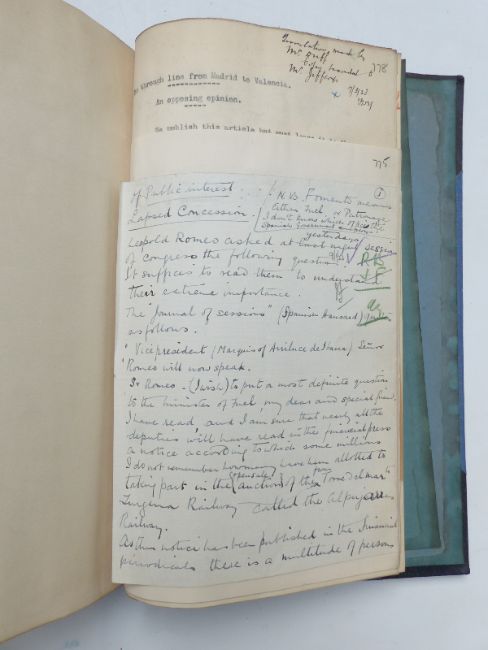 Translation made by
Mr Duff
Copy handed to
Mr Jefferys
778
The through line from Madrid to Valencia.
An opposing opinion.
We publish this article but must leave it to
775
Of Public interest
Lapsed Concession.
N.B. Foments means
either Fuel or Patronage
I don't know which of
Spanish Government
yesterday's
①
Leopold Romeo asked at last night session
of Congress the following question.
It suffices to read them to understand
their extreme importance.
The "Journal of sessions" (Spanish Hansard)
as follows.
"Vice president (Marquis of Arriluce de Ibarra) Señor
"Romeo will now speak.
"Sr Romeo - (I wish) to put a most definite question
"to the minister of Fuel, my dear and special friend.
I have read, and I am sure that nearly all the
deputies will have read in the financial press
a notice according to which some millions
I do not remember how many have been allotted to
taking part in the auction of the "Torre del mar"
Zurgena Railway called the Alpujarras
Railway.
As this notice has been published in the financial
periodicals there is a multitude of persons